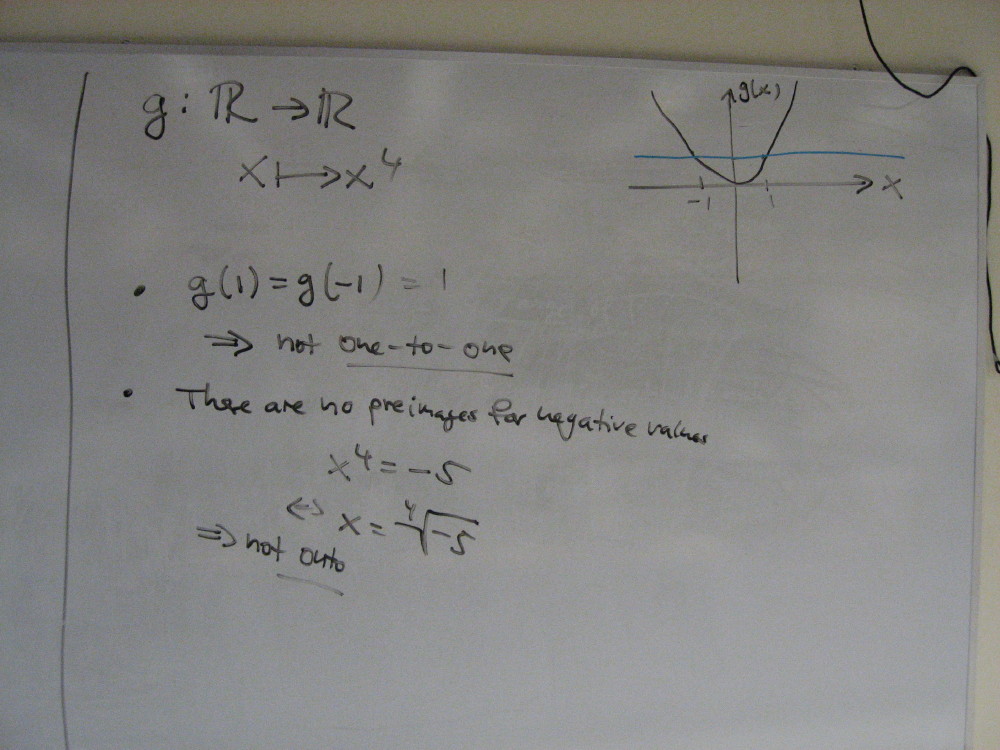 g: ℝ → ℝ
x ↦ x⁴
g(x)
x
-1 1
• g(1) = g(-1) = 1
⇒ not one-to-one
• There are no preimages for negative values
x⁴ = -5
⇔ x = ⁴√-5
⇒ not onto